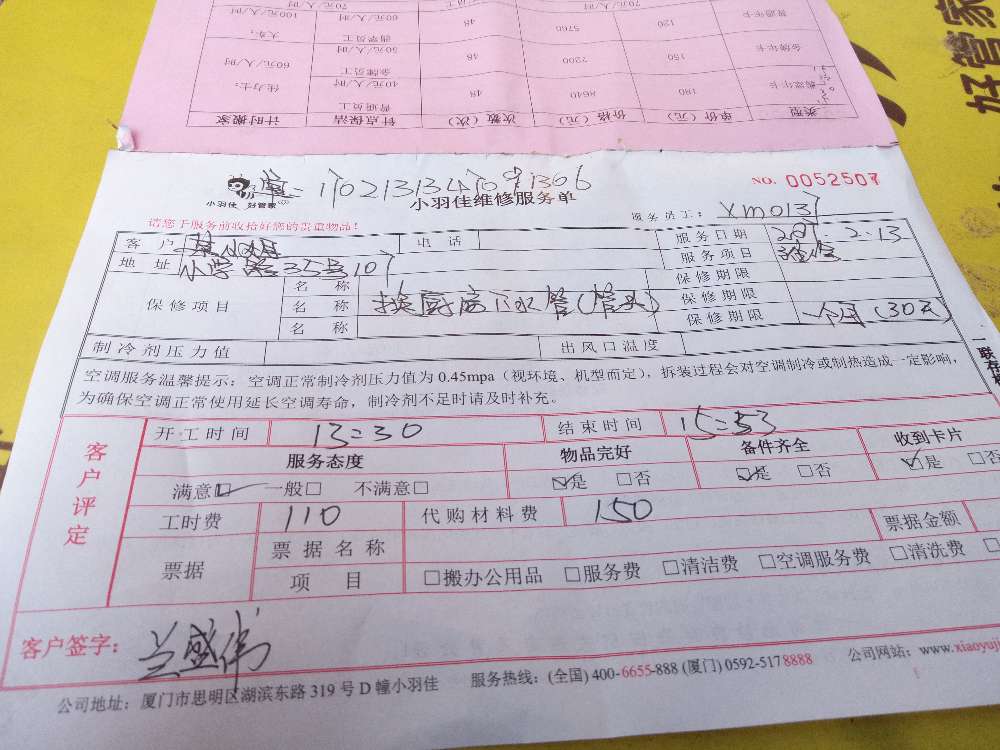 好管家
类型 单价（元） 价格（元） 次数（次） 钟点保洁 计时搬家
翡翠年卡 180 8640 48 普通员工 40元/人/时 伟力士：
金牌年卡 150 7200 48 金牌员工 50元/人/时 60元/人/时
普通年卡 120 5760 48 翡翠员工 60元/人/时 大亨： 100元/人/时
70元/人/时 70元/人/时
小羽佳 好管家
NO. 0052507
小羽佳维修服务单
服务员工： XM0137
请您于服务前收拾好您的贵重物品！
客户 电话 服务日期 2017.2.13
地址 服务项目 维修
保修项目 名称 保修期限
名称 换厨房下水管（管头） 保修期限
名称 保修期限 一个月（30天）
制冷剂压力值 出风口温度
空调服务温馨提示：空调正常制冷剂压力值为 0.45mpa（视环境、机型而定），拆装过程会对空调制冷或制热造成一定影响，
为确保空调正常使用延长空调寿命，制冷剂不足时请及时补充。
客户评定
开工时间 13:30 结束时间 15:53
服务态度 物品完好 备件齐全 收到卡片
满意□ 一般□ 不满意□ □是 □否 □是 □否 □是 □否
工时费 110 代购材料费 150 票据金额
票据 票据名称
项目 □搬办公用品 □服务费 □清洁费 □空调服务费 □清洗费
客户签字： 兰盛伟
公司地址：厦门市思明区湖滨东路 319 号 D 幢小羽佳 服务热线：(全国) 400-6655-888 (厦门) 0592-5178888 公司网站：www.xiaoyuji